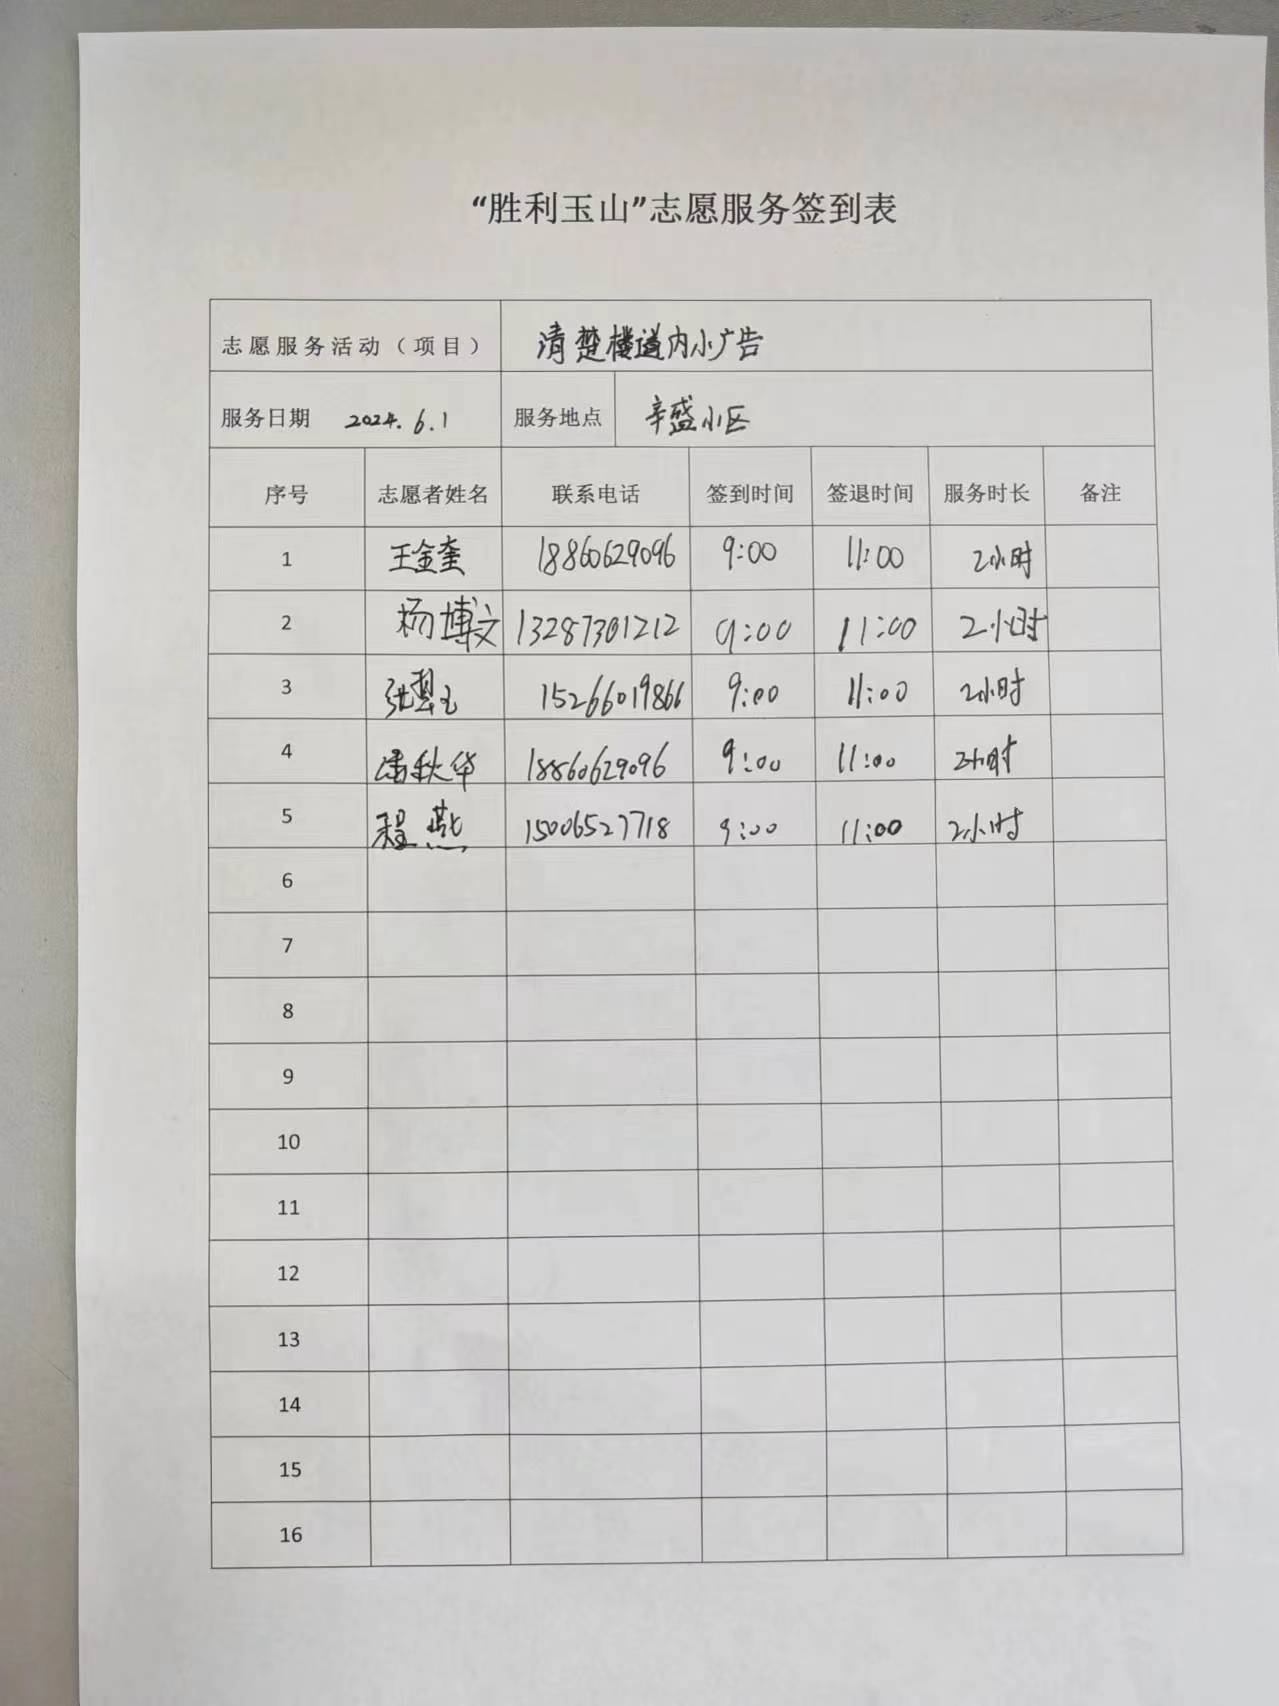 “胜利玉山”志愿服务签到表
志愿服务活动（项目） 清楚楼道内小广告
服务日期 2024.6.1 服务地点 辛盛小区
序号 志愿者姓名 联系电话 签到时间 签退时间 服务时长 备注
1 王金奎 18860629096 9:00 11:00 2小时
2 杨博文 13287301212 9:00 11:00 2小时
3 15266019866 9:00 11:00 2小时
4 秋华 18860629096 9:00 11:00 2小时
5 程燕 15006527718 9:00 11:00 2小时
6
7
8
9
10
11
12
13
14
15
16